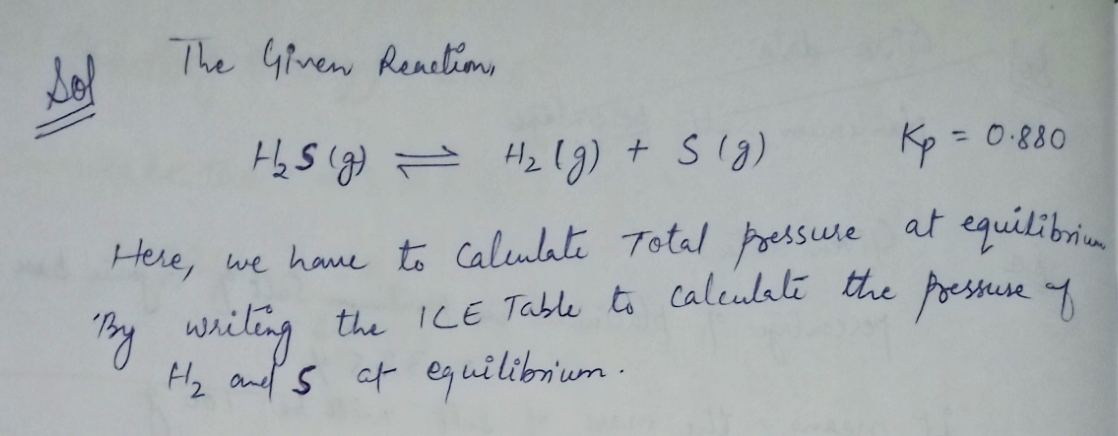 Sol The Given Reaction,
H₂S(g) ⇌ H₂(g) + S(g) Kp = 0.880
Here, we have to Calculate Total pressure at equilibrium
By writing the ICE Table to calculate the pressure of
H₂ and S at equilibrium.